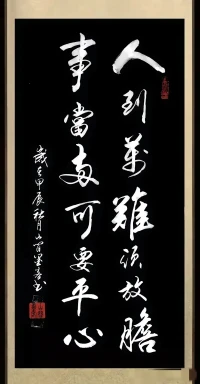 人到萬難須放膽
事當兩可要平心
歲在甲辰秋月